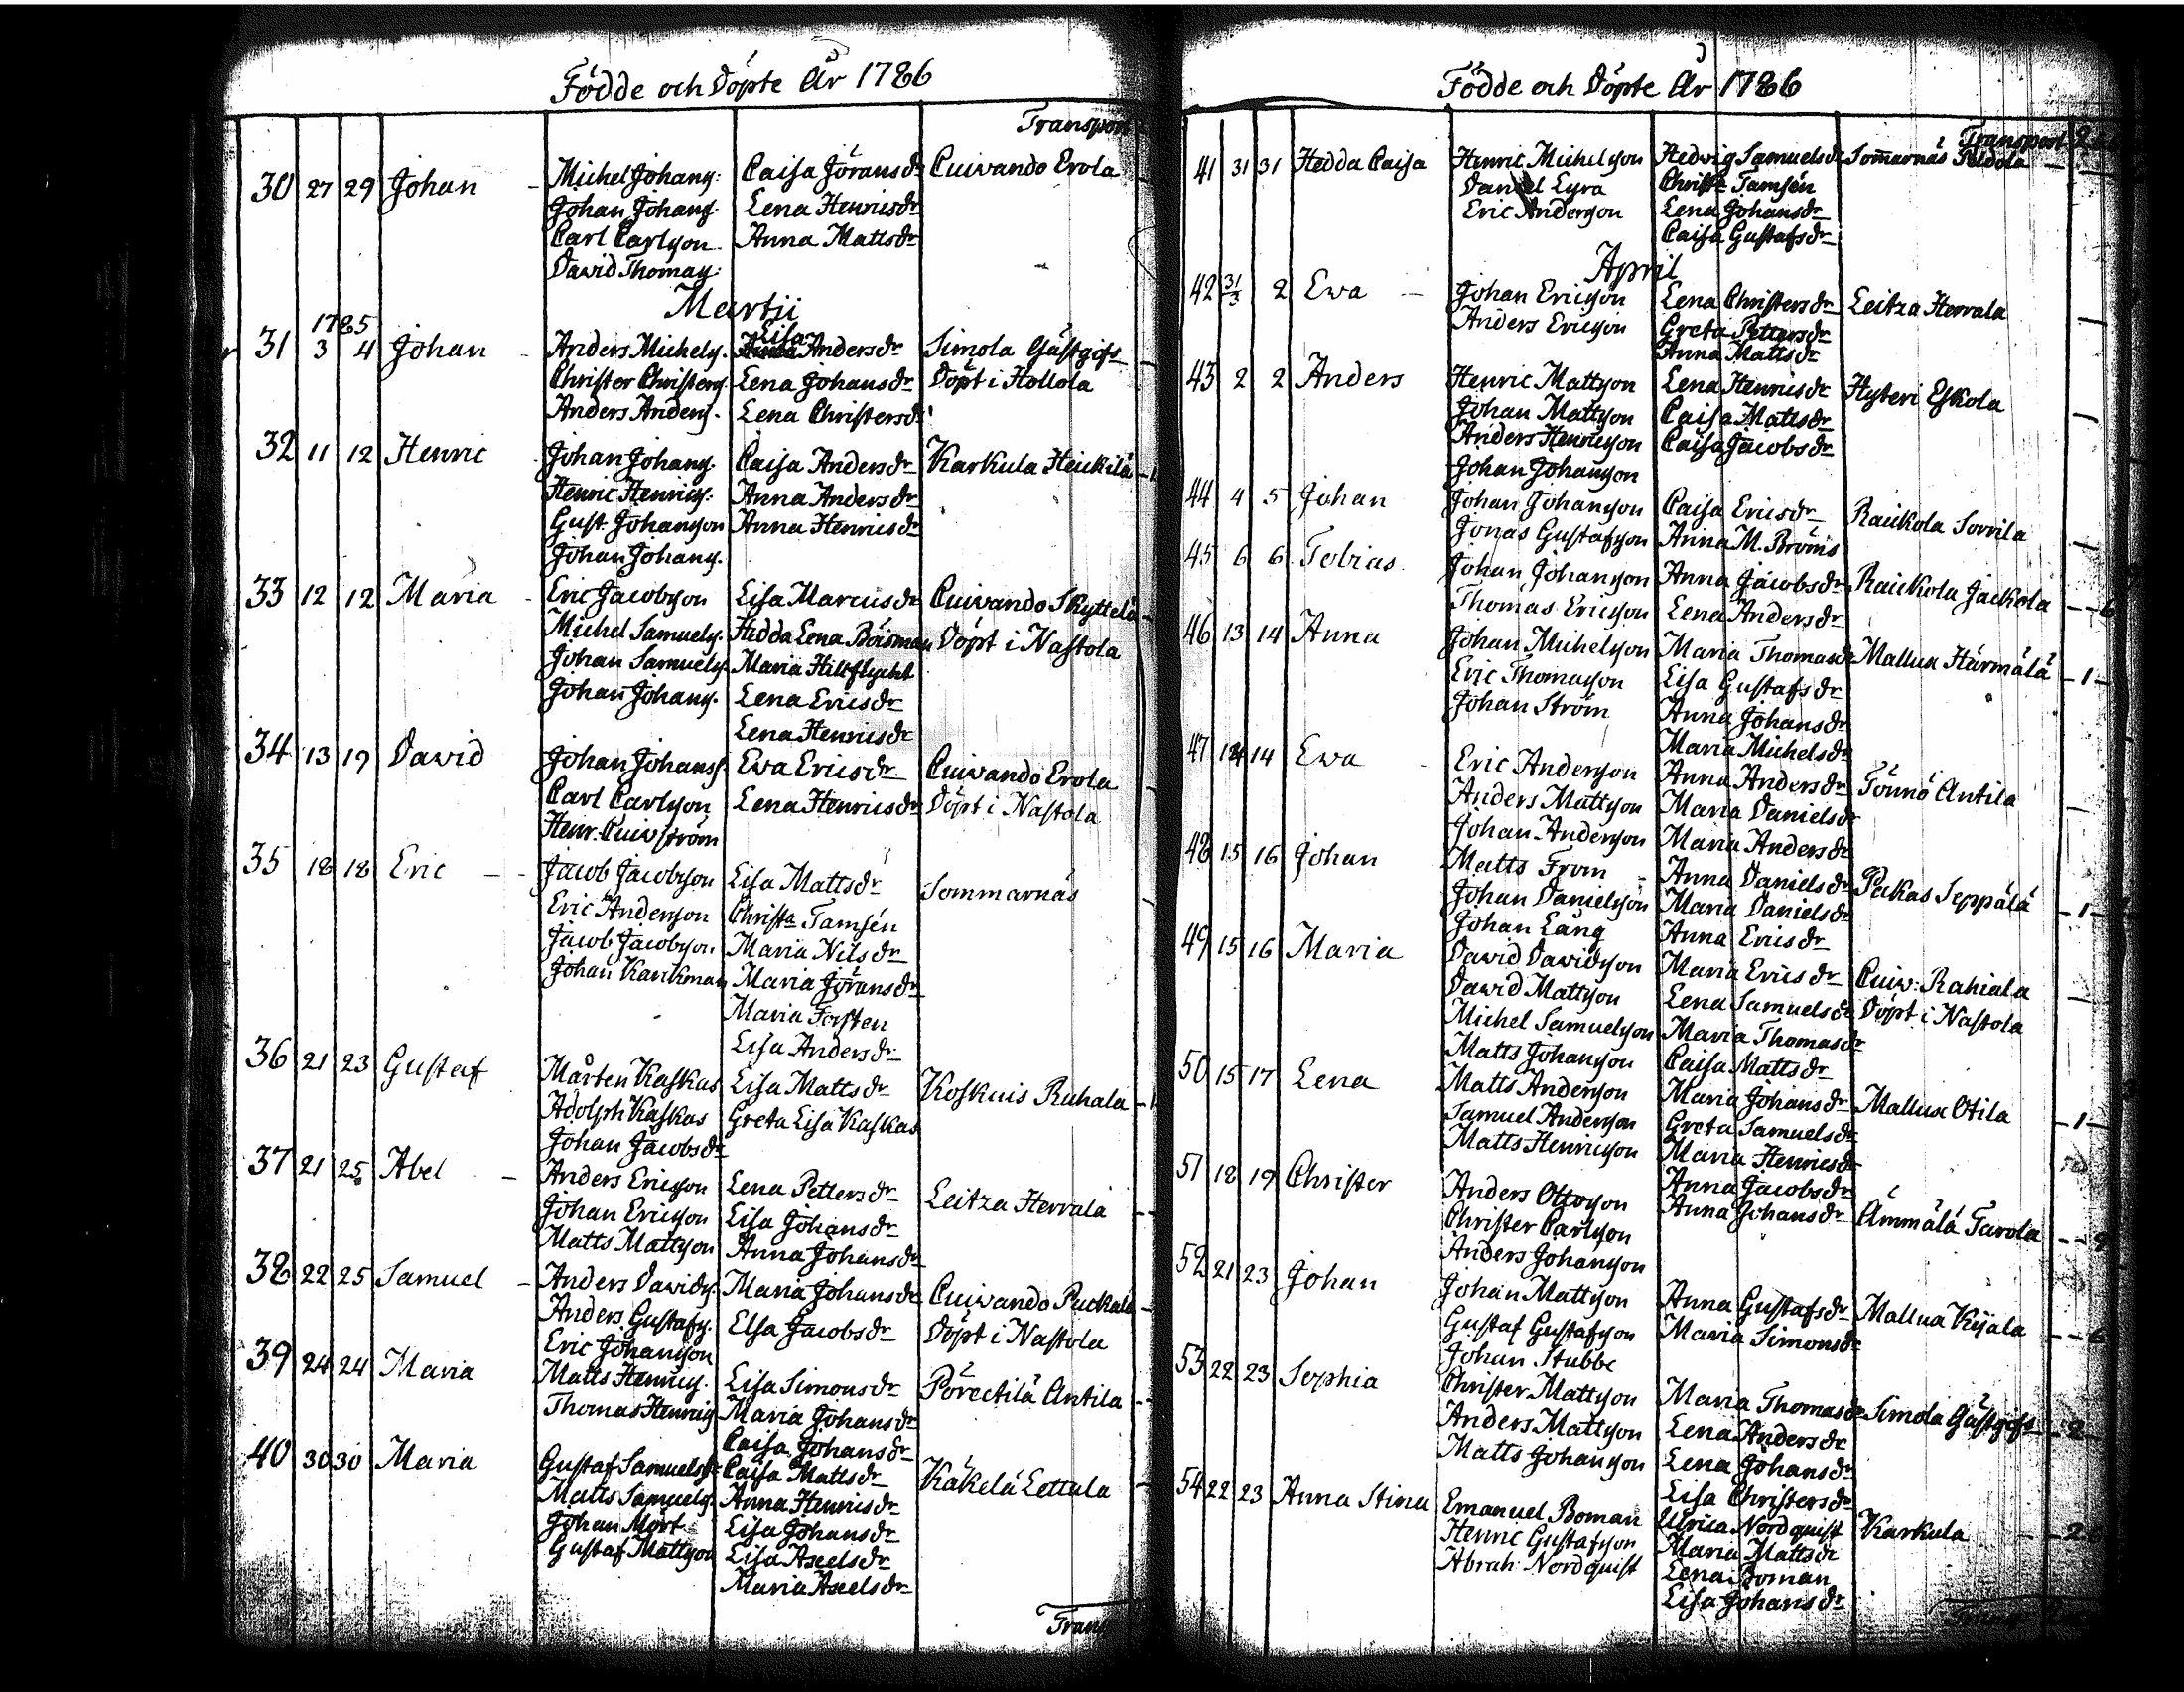 Födde och Döpte År 1786
Transport
30 27 29 Johan Michel Johans: Caisa Jöransdr Cuivando Erola
Johan Johans: Lena Henricsdr
Carl Carlsson Anna Mattsdr
David Thomas:
Martii
1785
31 3 4 Johan Anders Michels. Lisa Andersdr Simola Gästgifs
Christer Christers. Lena Johansdr Döpt i Hollola
Anders Anders. Lena Christersdr
32 11 12 Henric Johan Johans. Caisa Andersdr Karkula Heickilä
Henric Henrics. Anna Andersdr
Gust. Johansson Anna Henricsdr
Johan Johans.
33 12 12 Maria Eric Jacobsson Lisa Marcusdr Cuivando Skyttelä
Michel Samuels. Hedda Lena Boisman Döpt i Nastola
Johan Samuels. Maria
Johan Johans. Lena Ericsdr
Lena Henricsdr
34 13 19 David Johan Johans. Ewa Ericsdr Cuivando Erola
Carl Carlsson Lena Henricsdr Döpt i Nastola
Henr. Cuivström
35 18 18 Eric Jacob Jacobsson Lisa Mattsdr Sommarnäs
Eric Andersson Christa Tamsén
Jacob Jacobsson Maria Nilsdr
Johan Kankman Maria Jöransdr
Maria Forsten
Lisa Andersdr
36 21 23 Gustaf Mårten Kaskas Lisa Mattsdr Koskuis Ruhala
Adolph Kaskas Greta Lisa Kaskas
Johan Jacobsdr
37 21 25 Abel Anders Ericsson Lena Pettersdr Leitza Herrala
Johan Ericsson Lisa Johansdr
Matts Mattsson Anna Johansdr
38 22 25 Samuel Anders Davids. Maria Johansdr Cuivando Puckala
Anders Gustafs. Elsa Jacobsdr Döpt i Nastola
Eric Johansson
39 24 24 Maria Matts Henrics. Lisa Simonsdr Pöreetilä Antila
Thomas Henrics Maria Johansdr
Caisa Johansdr
40 30 30 Maria Gustaf Samuels. Caisa Mattsdr Käkelä Lettula
Matts Samuels. Anna Henricsdr
Johan Mört Lisa Johansdr
Gustaf Mattsson Lisa Axelsdr
Maria Axelsdr
Trans
Födde och Döpte År 1786
Transport
41 31 31 Hedda Caisa Henric Michelsson Hedwig Samuelsdr Sommarnäs Peldola
Daniel Lyra Christa Tamsén
Eric Andersson Lena Johansdr
Caisa Gustafsdr
April
42 31/3 2 Ewa Johan Ericsson Lena Christersdr Leitza Herrala
Anders Ericsson Greta Pettersdr
Anna Mattsdr
43 2 2 Anders Henric Mattsson Lena Henricsdr Hyteri Eskola
Johan Mattsson Caisa Mattsdr
Anders Henricsson Caisa Jacobsdr
Johan Johansson
44 4 5 Johan Johan Johansson Caisa Ericsdr Raickola Sorvila
Jonas Gustafsson Anna M. Broms
45 6 6 Tobias Johan Johansson Anna Jacobsdr Raickola Jackola 6
Thomas Ericsson Lena Andersdr
46 13 14 Anna Johan Michelsson Maria Thomasdr Mallua Härmälä 1
Eric Thomasson Lisa Gustafsdr
Johan Ström Anna Johansdr
Maria Michelsdr
47 14 Ewa Eric Andersson Anna Andersdr Tönnö Antila
Anders Mattsson Maria Danielsdr
Johan Andersson Maria Andersdr
48 15 16 Johan Matts From Anna Danielsdr Pakas Seppälä 1
Johan Danielsson Maria Danielsdr
Johan Lång Anna Ericsdr
49 15 16 Maria David Davidsson Maria Ericsdr Cuiv. Rahiala
David Mattsson Lena Samuelsdr Döpt i Nastola
Michel Samuelsson Maria Thomasdr
Matts Johansson Caisa Mattsdr
50 15 17 Lena Matts Andersson Maria Johansdr Mallua Otila 1
Samuel Andersson Greta Samuelsdr
Matts Henricsson Maria Henricsdr
Anna Jacobsdr
51 18 19 Christer Anders Ottosson Anna Johansdr Ämmälä Tarola
Christer Carlsson
Anders Johansson
52 21 23 Johan Johan Mattsson Anna Gustafsdr Mallua Kijala 6
Gustaf Gustafsson Maria Simonsdr
Johan Stubbe
53 22 23 Sophia Christer Mattsson Maria Thomasdr Simola Gästgifs 2
Anders Mattsson Lena Andersdr
Matts Johansson Lena Johansdr
Lisa Christersdr
54 22 23 Anna Stina Emanuel Boman Ulrica Nordquist Karkula 2
Henric Gustafsson Maria Mattsdr
Abrah. Nordquist Lena Boman
Lisa Johansdr